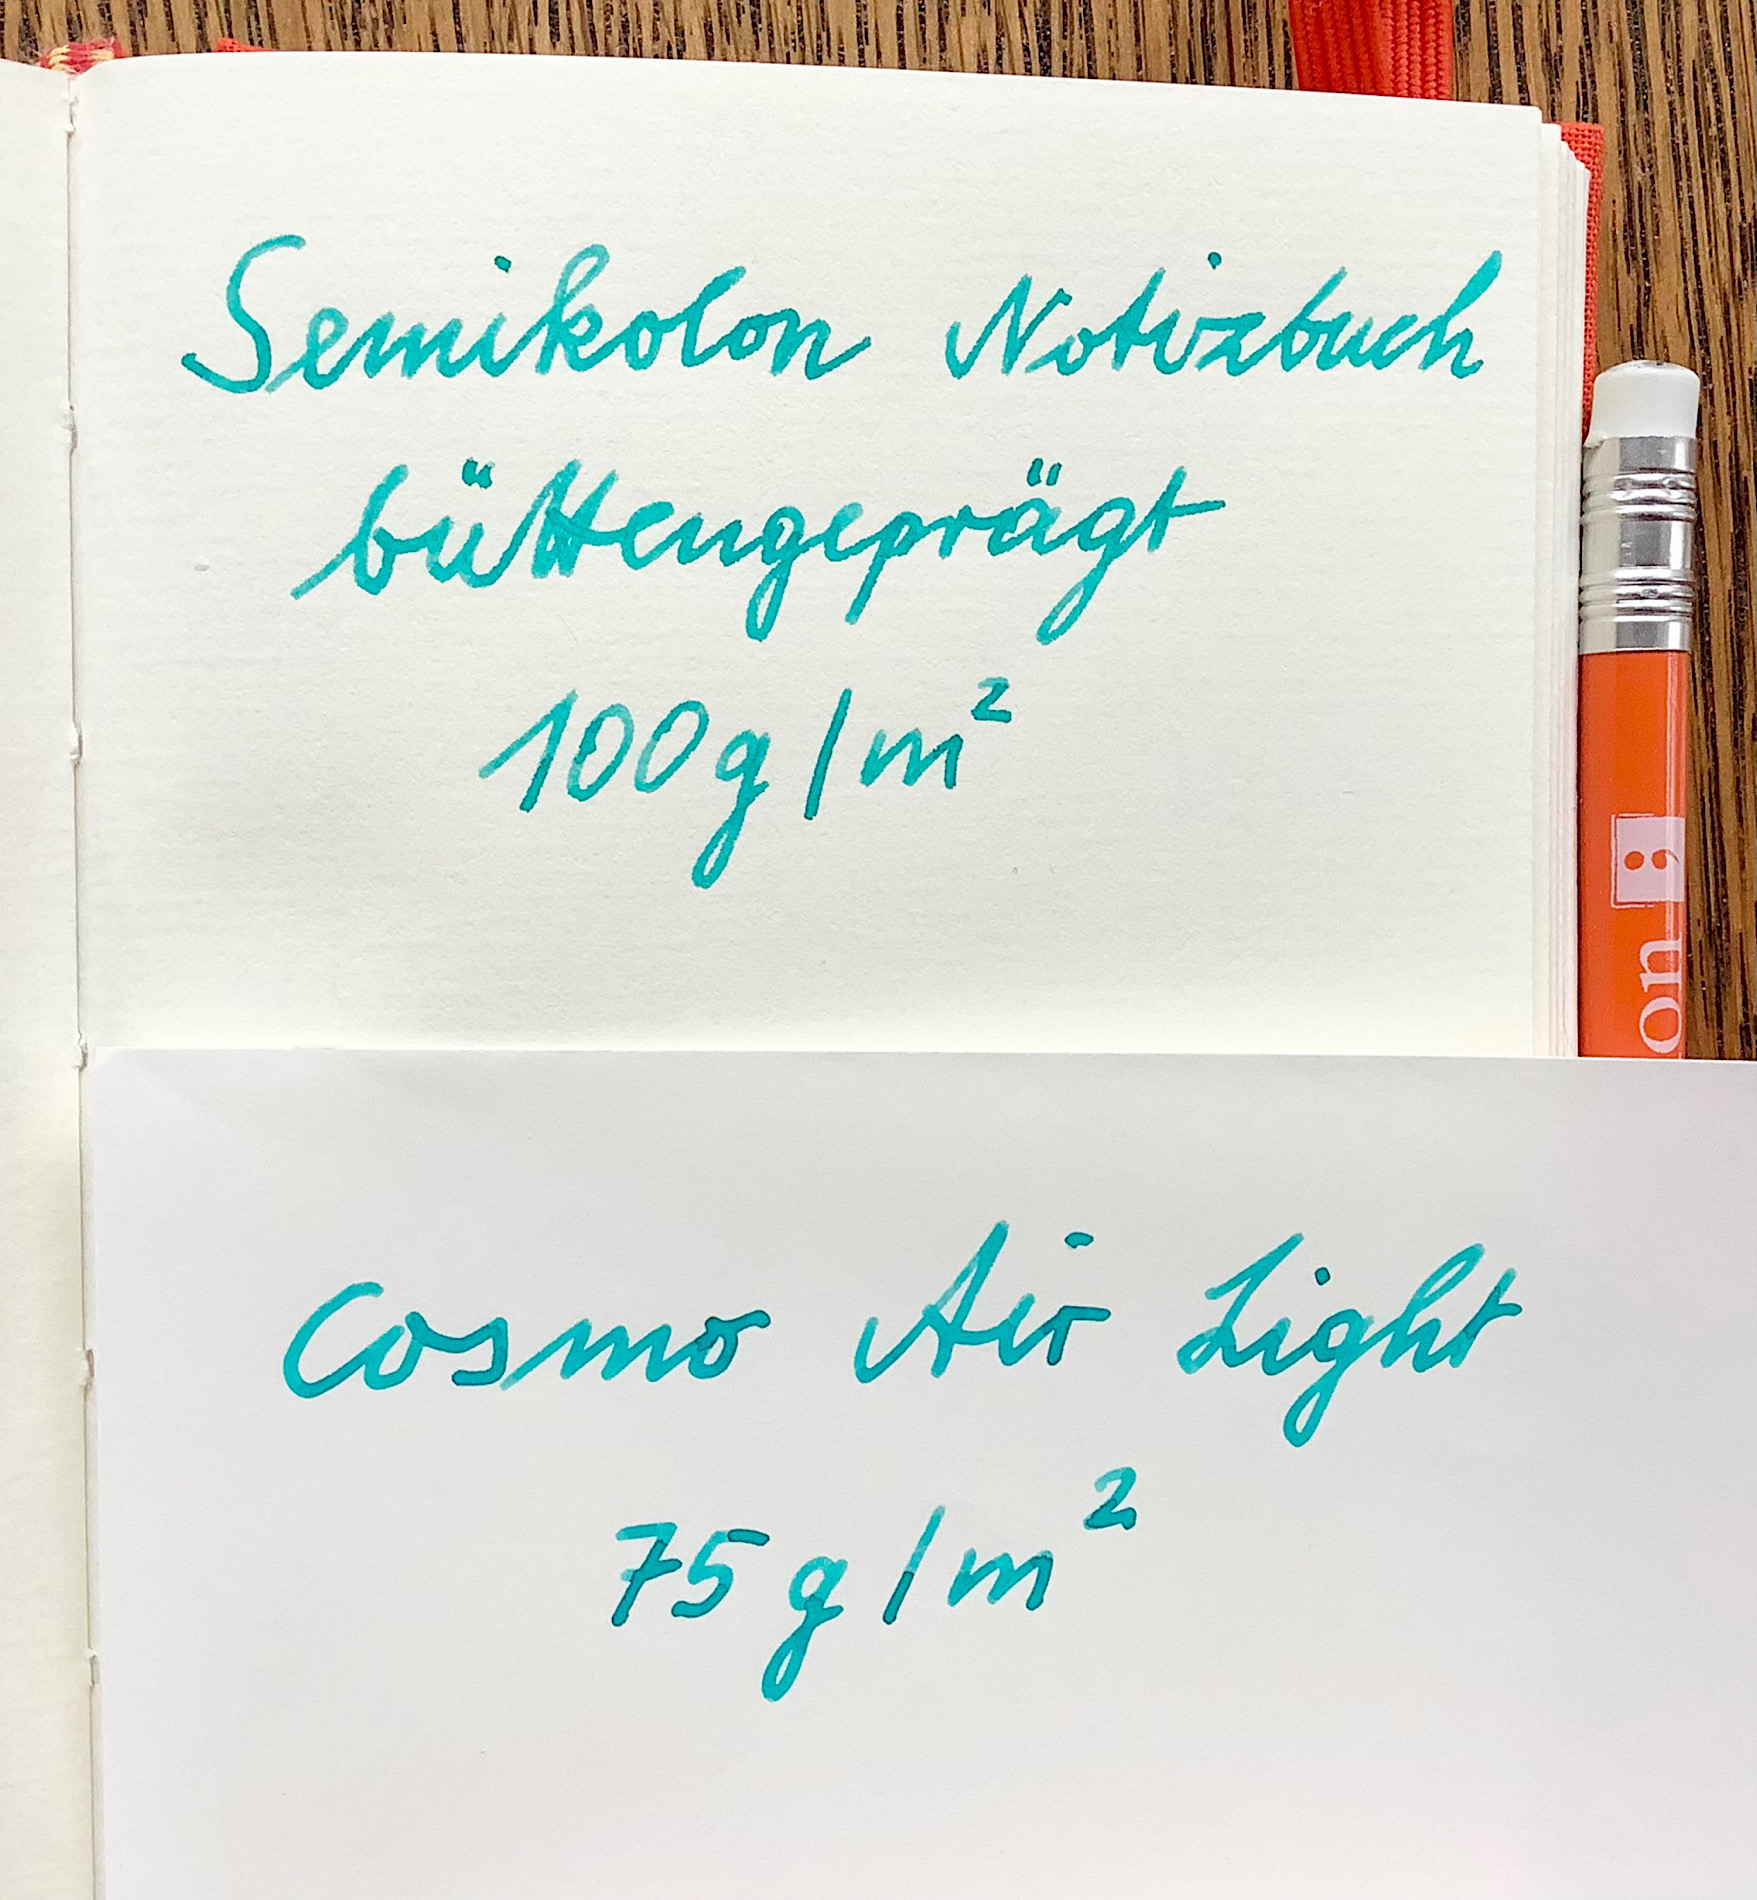 Semikolon Notizbuch
büttengeprägt
100g/m²
on ;
Cosmo Air Light
75g/m²